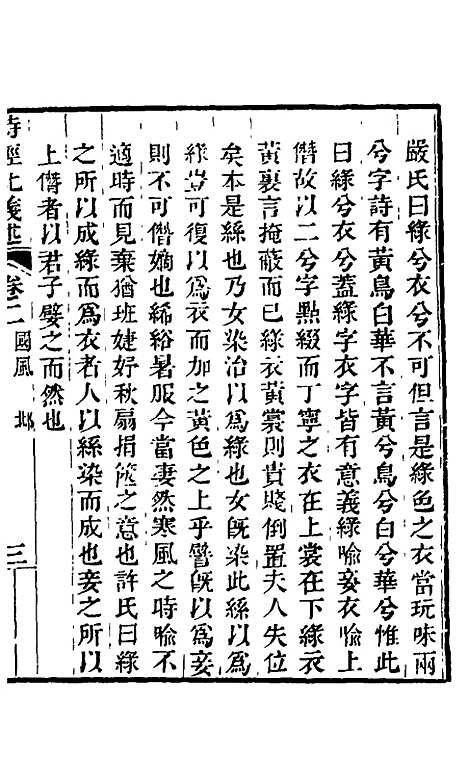 嚴氏曰綠兮衣兮不可但言是綠色之衣當玩味兩
兮字詩有黃鳥白華不言黃兮鳥兮白兮華兮惟此
曰綠兮衣兮蓋綠字衣字皆有意義綠喻妾衣喻上
僭故以二兮字點綴而丁寧之衣在上裳在下綠衣
黃裏言掩蔽而已綠衣黃裳則貴賤倒置夫人失位
矣本是絲也乃女染治以爲綠也女既染此絲以爲
綠豈可復以爲衣而加之黃色之上乎譬既以爲妾
則不可僭嫡也絺綌暑服今當凄然寒風之時喻不
適時而見棄猶班婕妤秋扇捐篋之意也許氏曰綠
之所以成綠而爲衣者人以絲染而成也妾之所以
上僭者以君子嬖之而然也
詩經比義述 卷二 國風 邶 三